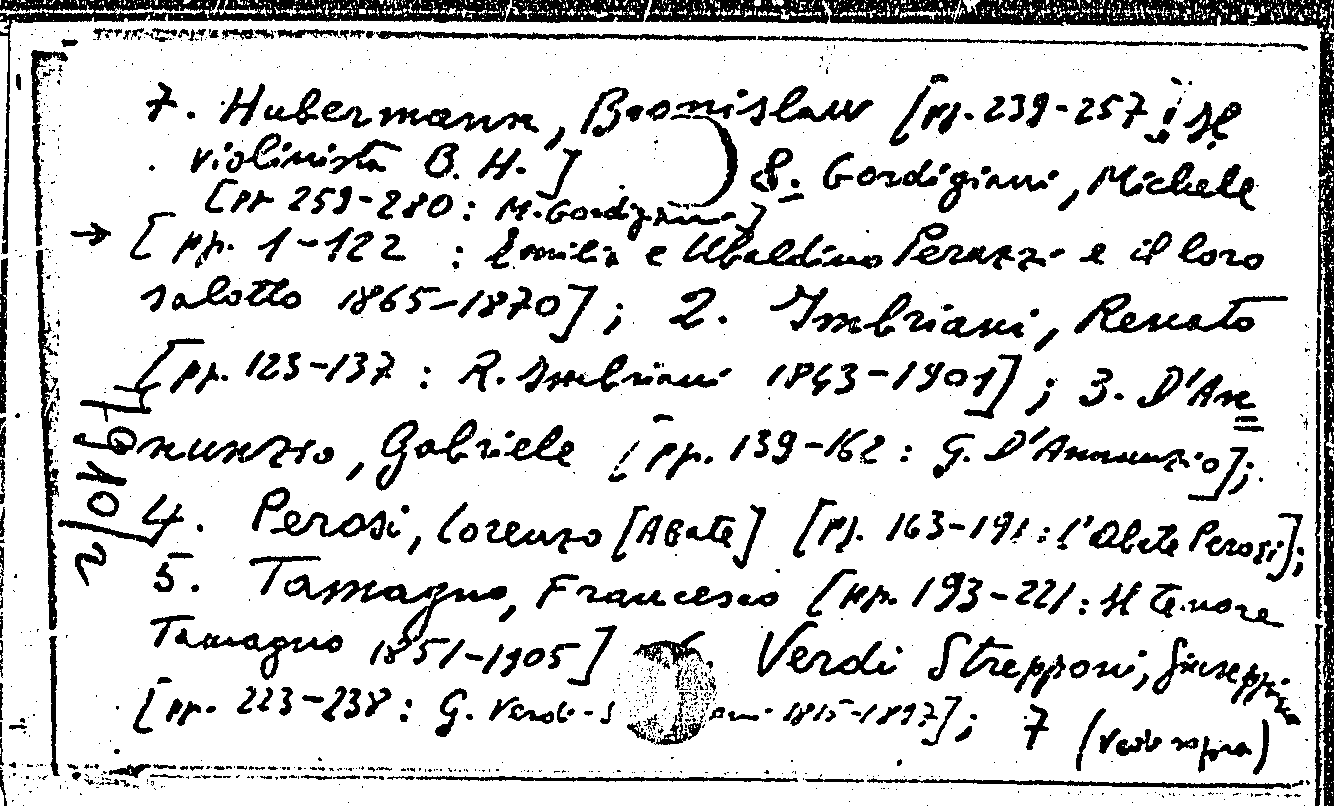 7. Hubermann, Bronislaw [pp. 239-257: Il
violinista B. H.] 8. Gordigiani, Michele
[pp 259-280: M. Gordigiani]
→ [pp. 1-122 : Emilia e Ubaldino Peruzzi e il loro
salotto 1865-1870]; 2. Imbriani, Renato
[pp. 123-137 : R. Imbriani 1843-1901]; 3. D'An
nunzio, Gabriele [pp. 139-162: G. D'Annunzio];
4. Perosi, Lorenzo [Abate] [pp. 163-191: l'Abate Perosi];
5. Tamagno, Francesco [pp. 193-221: Il tenore
Tamagno 1851-1905] 6. Verdi Strepponi, Giuseppina
[pp. 223-238: G. Verdi-S 1815-1897]; 7 (vedi sopra)